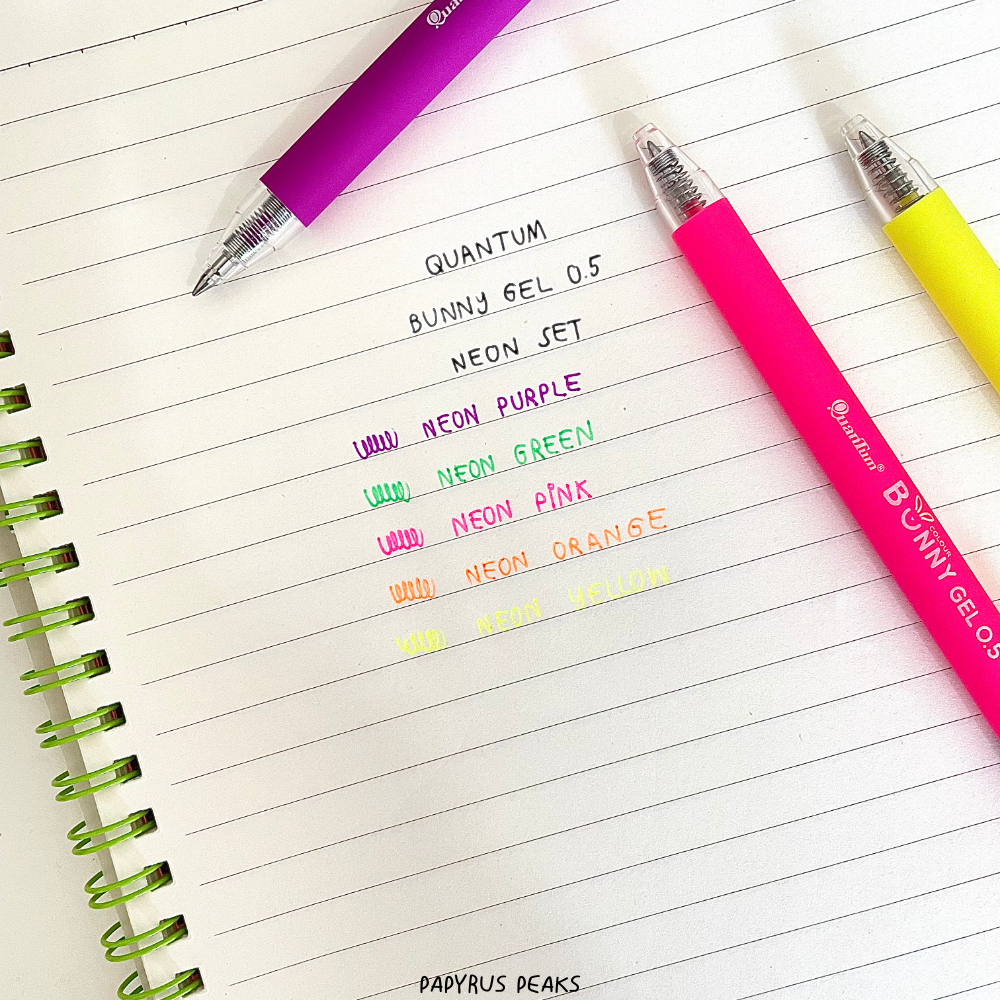 Qua
QUANTUM
BUNNY GEL 0.5
NEON SET
NEON PURPLE
NEON GREEN
NEON PINK
NEON ORANGE
NEON YELLOW
QuanTum®
BUNNY GEL 0.5
COLOUR
PAPYRUS PEAKS